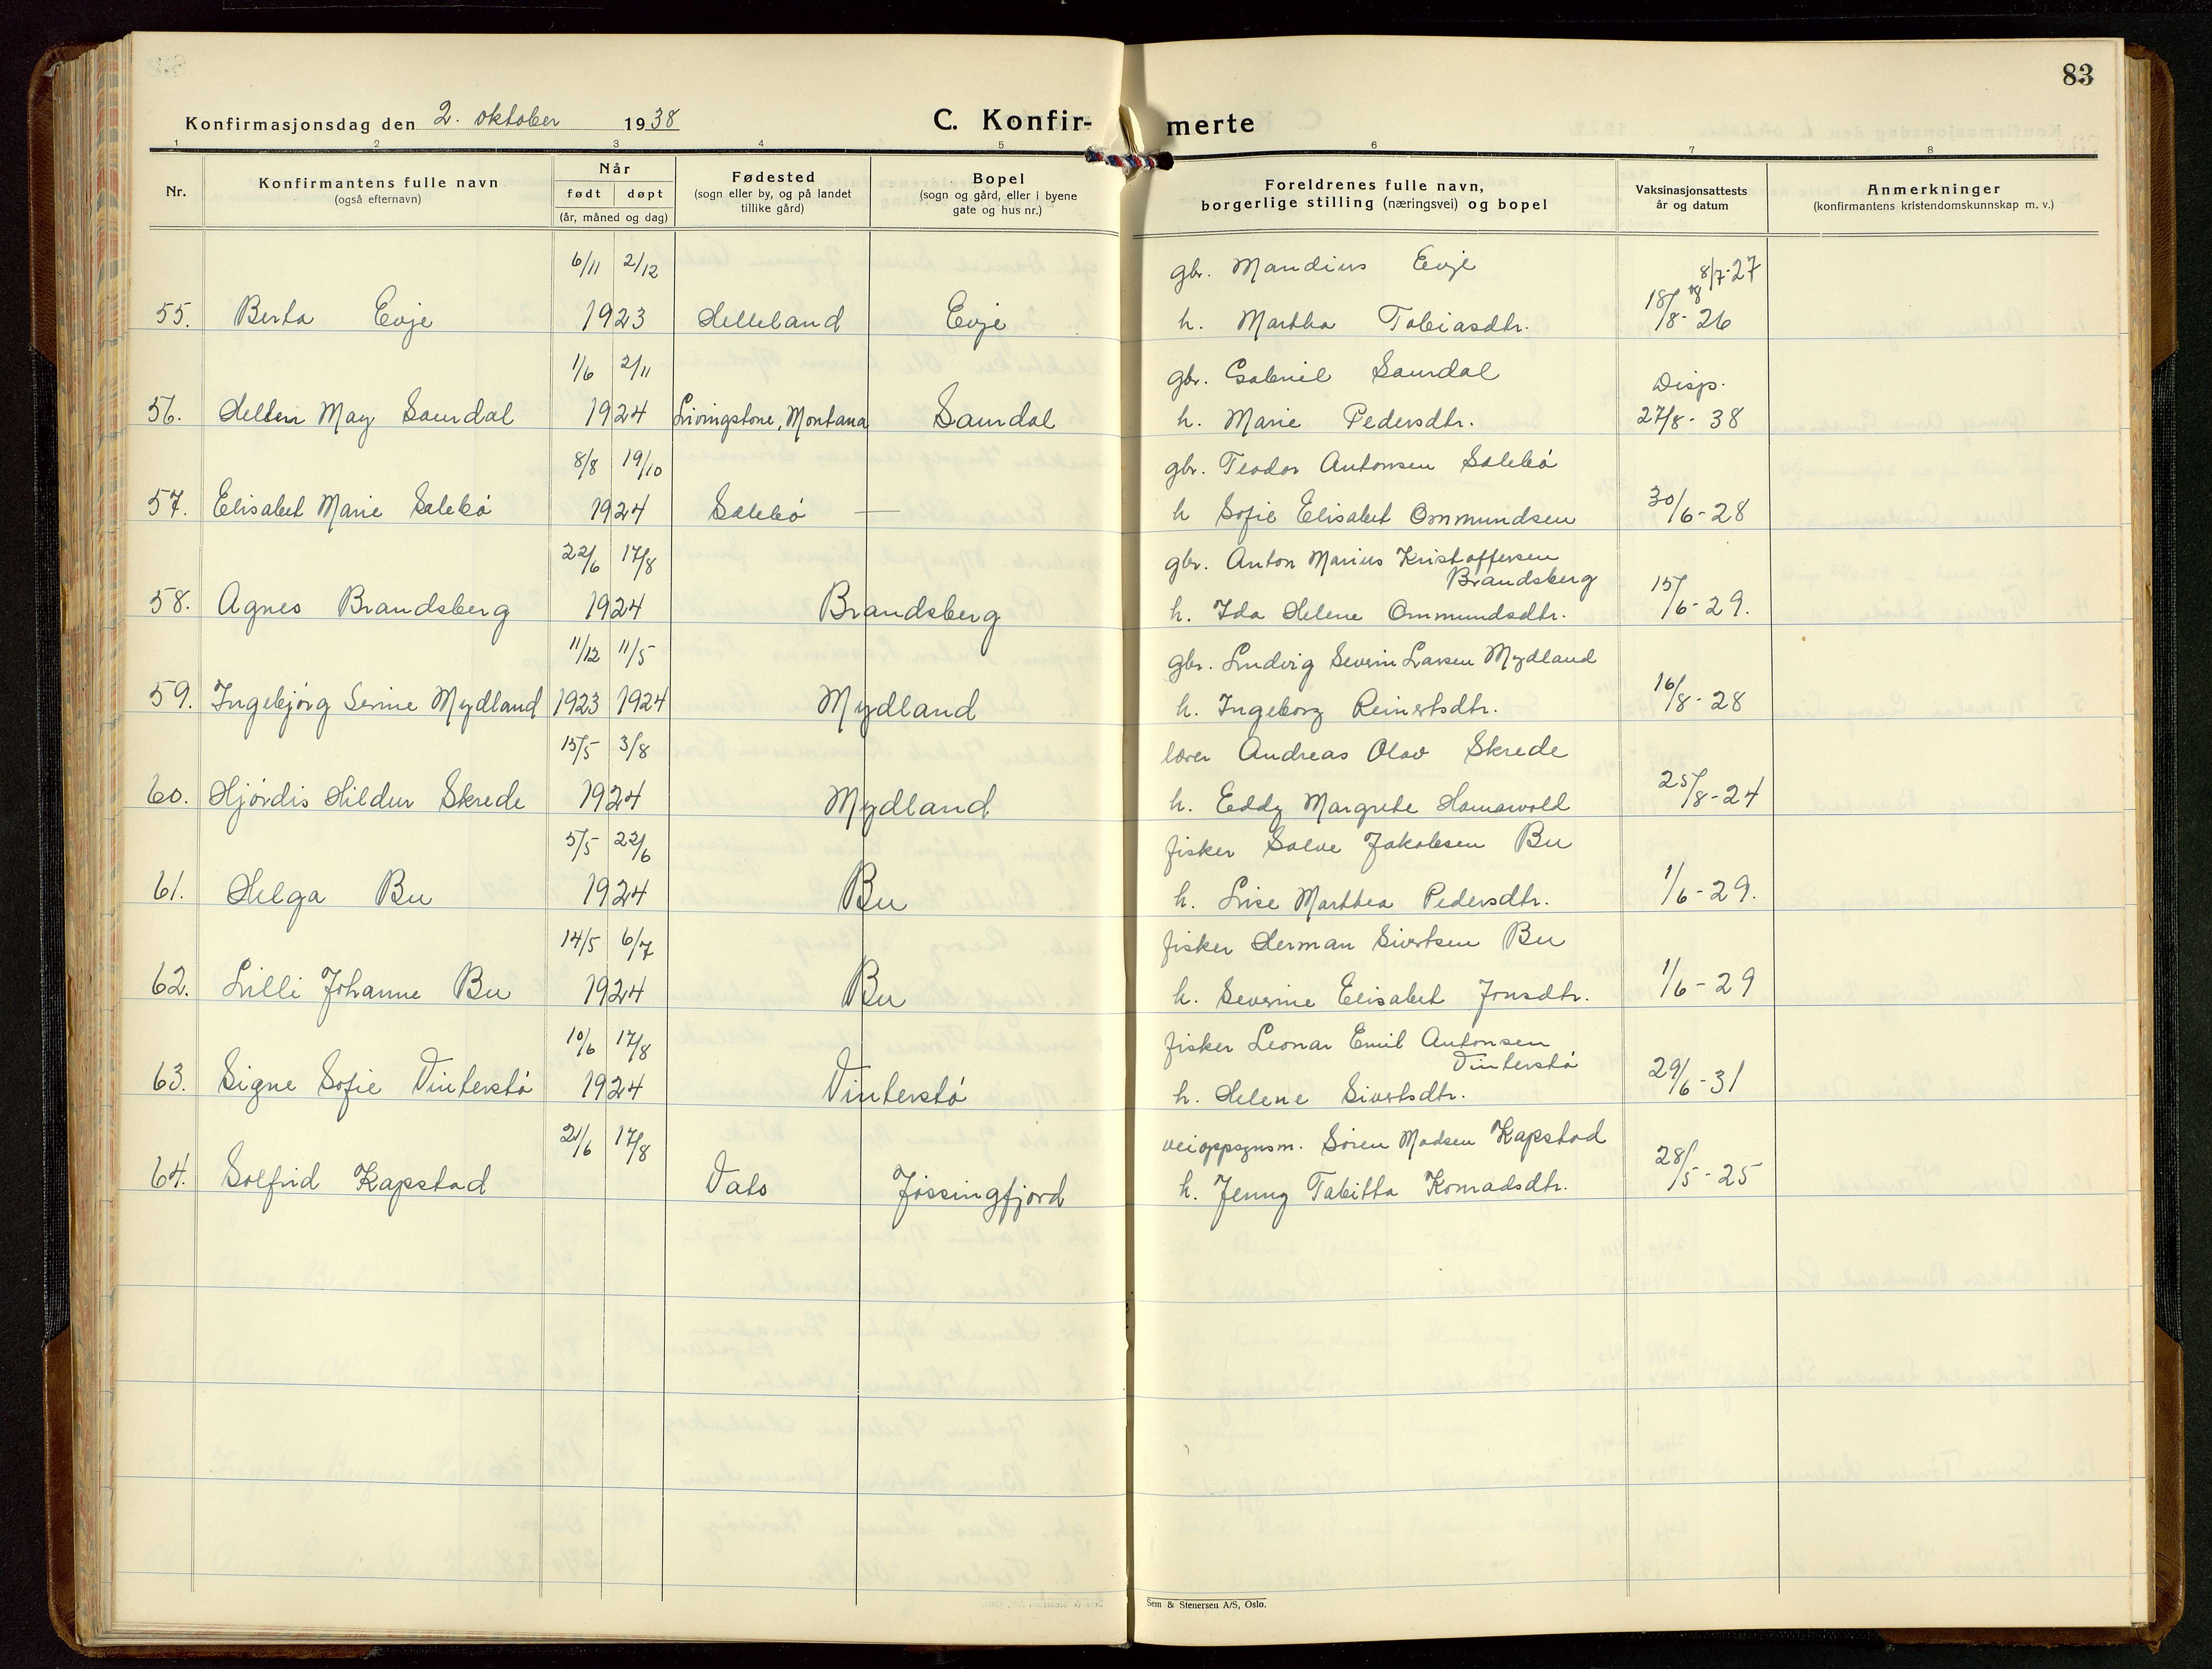 83
Konfirmasjonsdag den 2. oktober 1938
C. Konfir- merte
1 2 3 4 5 6 7 8
Nr.
Konfirmantens fulle navn
(også efternavn)
Når
født døpt
(år, måned og dag)
Fødested
(sogn eller by, og på landet
tillike gård)
Bopel
(sogn og gård, eller i byene
gate og hus nr.)
Foreldrenes fulle navn,
borgerlige stilling (næringsvei) og bopel
Vaksinasjonsattests
år og datum
Anmerkninger
(konfirmantens kristendomskunnskap m. v.)
6/11 2/12 gbr. Mandius Evje 8/7-27
55. Berta Evje 1923 Helleland Evje h. Martha Tobiasdtr. 18/8-26
1/6 2/11 gbr. Gabriel Saurdal Disp.
56. Hellen May Saurdal 1924 Livingstone, Montana Saurdal h. Marie Pedersdtr. 27/8-38
8/8 19/10 gbr. Teodor Antonsen Salebö
57. Elisabet Marie Salebö 1924 Salebö — h Sofie Elisabet Ommundsen 30/6-28
22/6 17/8 gbr. Anton Marius Kristoffersen
Brandsberg
58. Agnes Brandsberg 1924 Brandsberg h. Ida Helene Ommundsdtr. 15/6-29.
11/12 11/5 gbr. Ludvig Severin Larsen Mydland
59. Ingebjörg Serine Mydland 1923 1924 Mydland h. Ingeborg Reinertsdtr. 16/8-28
15/5 3/8 lærer Andreas Olav Skrede
60. Hjördis Hildur Skrede 1924 Mydland h. Eddy Margrete Hamarvold 25/8-24
5/5 22/6 fisker Salve Jakobsen Bu
61. Helga Bu 1924 Bu h. Lise Marthea Pedersdtr. 1/6-29.
14/5 6/7 fisker Herman Sivertsen Bu
62. Lilli Johanne Bu 1924 Bu h. Severine Elisabet Jonsdtr. 1/6-29
10/6 17/8 fisker Leonar Emil Antonsen
Vinterstö
63. Signe Sofie Vinterstö 1924 Vinterstö h. Helene Sivertsdtr. 29/6-31
21/6 17/8 veioppsynsm. Sören Madsen Kapstad
64. Solfrid Kapstad Vats Jössingfjord h. Jenny Tabitta Konradsdtr. 28/5-25
Sem & Stenersen A/S, Oslo.